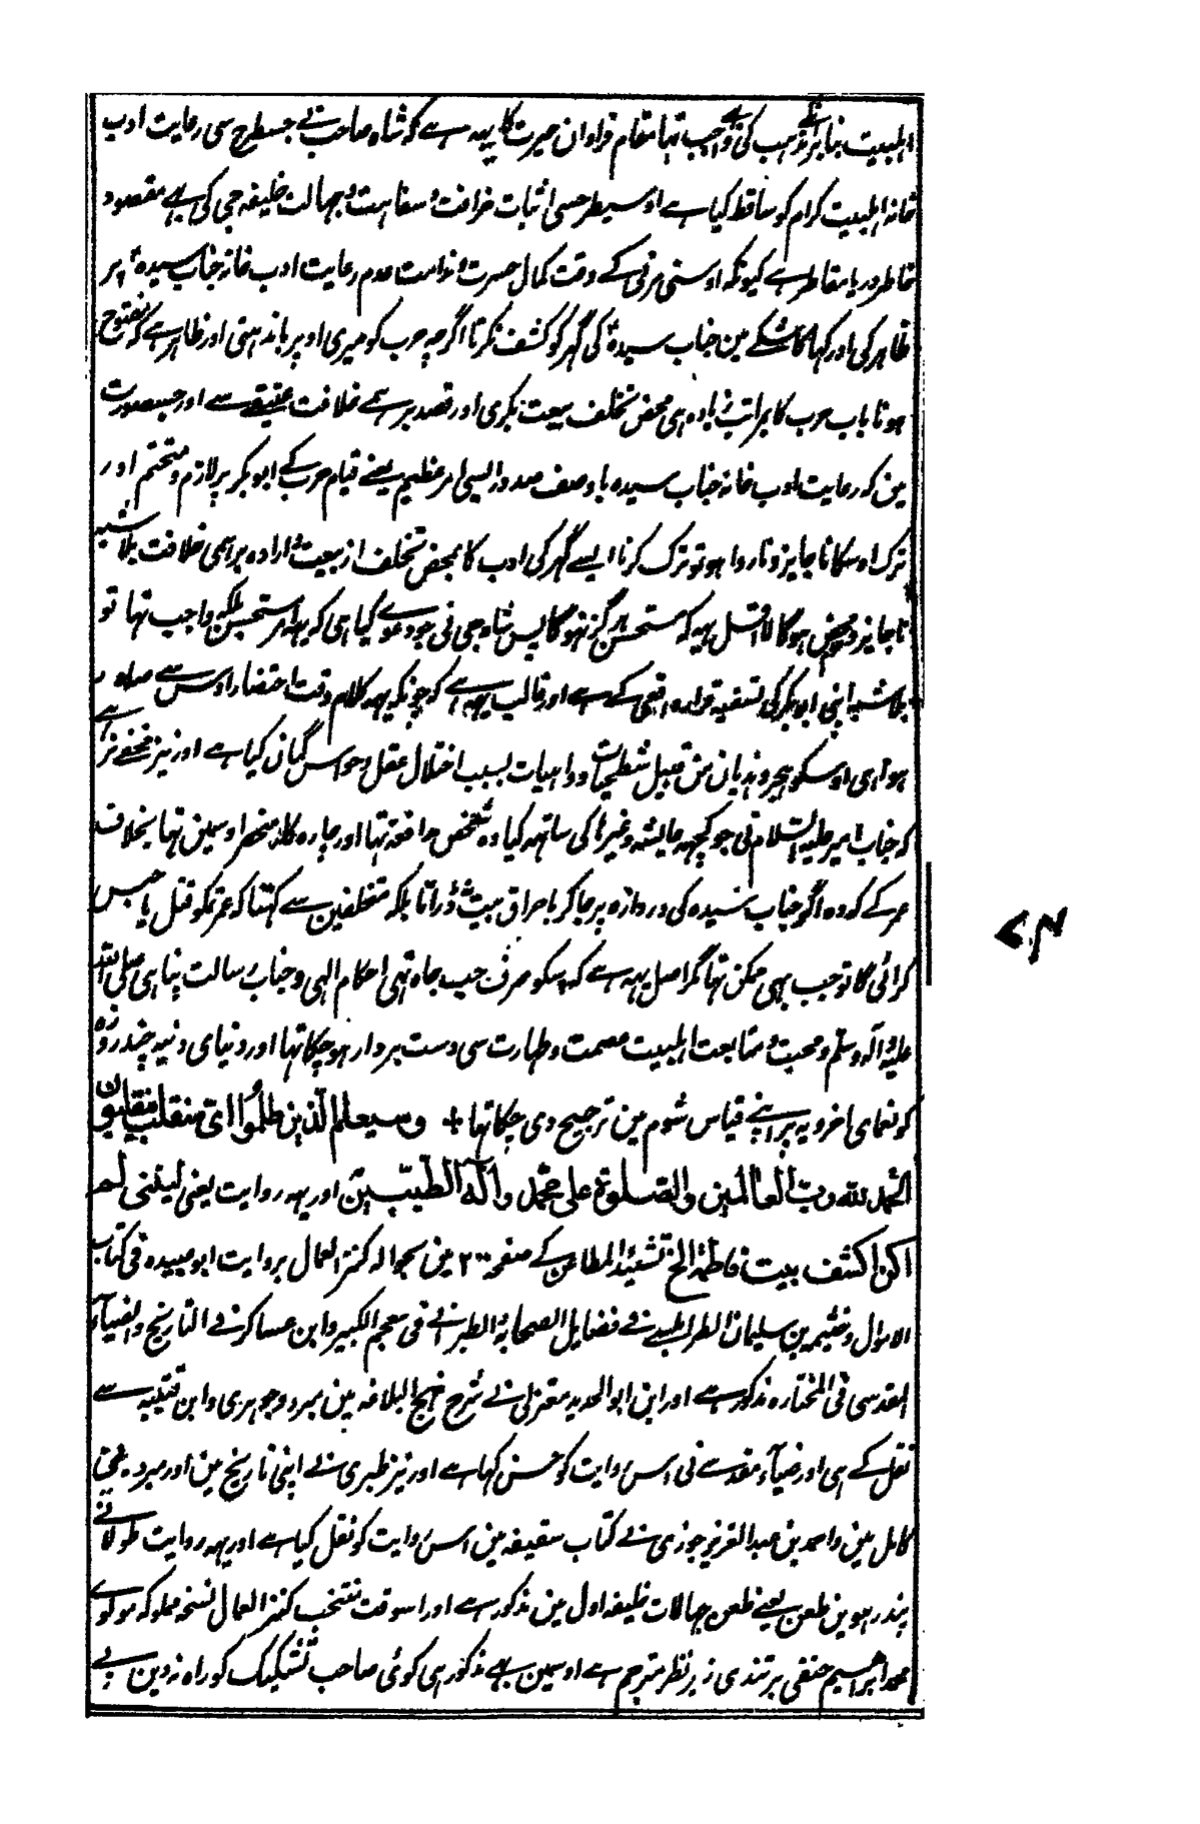 اہلبیت بنا بر مذہب کی واجب تہا مقام فراوان حیرت کا یہہ ہے کہ شاہ صاحب نے جسطرح سی رعایت ادب
خانہ اہلبیت کرام کو ساقط کیا ہے اوسیطرحسی اثبات خرافت و سفاہت و جہالت خلیفہ جی کی ہے مقصود
خاطر دریا مقاطر ہے کیونکہ اوسنی مرنی کے وقت کمال حسرت و ندامت عدم رعایت ادب خانہ جناب سیدہ پر
ظاہر کی اور کہا کاشکے مین جناب سیدہ کی گہر کو کشف نکرتا اگرچہ حرب کو میری اوپر باندہتی اور ظاہر ہے کہ مفتوح
ہونا باب حرب کا بمراتب زیادہ ہی محض تخلف بیعت بکری اور قصد برہمے خلافت عتیقے سے اور جسصورت
مین کہ رعایت ادب خانہ جناب سیدہ باوصف صدور ایسی امر عظیم یعنے قیام حرب کے ابوبکر پر لازم و متحتم اور
ترک اوسکا ناجایز و ناروا ہو تو ترک کرنا ایسے گہر کی ادب کا بمحض تخلف از بیعت و ارادہ برہمی خلافت بلاشبہ
ناجایز و ہوگا لا اقل یہہ کہ مستحسن ہرگز نہوگا پس شاہ جی نی جو دعوے کیا ہی کہ یہہ امر مستحسن بلکہ واجب تہا تو
بلاشبہ اپنی ابوبکر کی تسفیہ قرار واقعی کے ہے اور غالب یہہ ہے کہ چونکہ یہہ کلام وقت احتضار اوس سے صادر
ہوا ہی اوسکو ہجر و ہذیان من قبیل شطحیات و واہیات بسبب اختلال عقل و حواس گمان کیا ہے اور نیز مخفے نرہے
کہ جناب امیر علیہ السلام نی جو کچہہ عایشہ وغیرہا کی ساتہہ کیا وہ تہا اور چارہ کار منحصر اوسمین تہا بخلاف
عمر کے کہ وہ اگر جناب سیدہ کی دروازہ پر جا کر باحراق بیت نہ ڈراتا بلکہ متخلفین سے کہتا کہ تمکو قتل یا حبس
کرائی گا تو جب بہی ممکن تہا مگر اصل یہہ ہے کہ صرف حب جاہ تہی احکام الہی و جناب رسالت پناہی صلی اللہ
علیہ وآلہ وسلم و محبت و متابعت اہلبیت عصمت و طہارت سی دست بردار ہو چکا تہا اور دنیای دنیہ چند روزہ
کو نعمای اخرویہ پر اپنے قیاس شوم مین ترجیح دی چکا تہا + وسیعلم الذین ظلموا ای منقلب ینقلبون
الحمد للہ رب العالمین والصلوة علی محمد وآلہ الطیبین اور یہہ روایت یعنی لیتنی لم
اکن اکشف بیت فاطمة الخ تشئید المطاعن کے صفحہ ۲۰۰ مین بحوالہ کنز العمال بروایت ابو عبیدہ فی کتاب
الاموال و خثیمہ بن سلیمان الطرابلسے نے فضایل الصحابة والطبرانے فی معجم الکبیر وابن عساکر نے التاریخ والضیآء
المقدسی فی المختارہ مذکور ہے اور ابن ابو الحدید معتزلی نے شرح نہج البلاغہ مین مبرد و جوہری و ابن قتیبہ سے
نقل کے ہی اور ضیآء مقدسے نی اس روایت کو حسن کہا ہے اور نیز طبری نے اپنی تاریخ مین اور مبرد نی
کامل مین و احمد بن عبد العزیز جوزی نے کتاب سقیفہ مین اس روایت کو نقل کیا ہے اور یہہ روایت طولانے
پندرہوین طعن یعنے طعن جہالات خلیفہ اول مین مذکور ہے اور اسوقت منتخب کنز العمال نسخہ مملوکہ مولوے
محمد ابراہیم حنفی پرتندی زیر نظر مترجم ہے اوسمین بہے مذکور ہی کوئی صاحب تشکیک کو راہ ندین